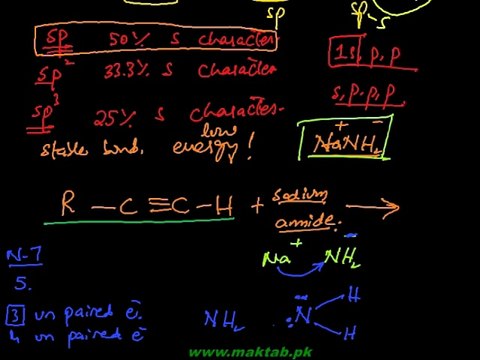 sp sp-s
sp 50% s character 1s, p, p
sp² 33.3% s character s, p, p, p
sp³ 25% s character
stable bond. low energy! Na⁺NH₂⁻
R-C≡C-H + sodium amide. →
Na⁺ NH₂⁻
N-7
5.
3 un paired e⁻
4 un paired e⁻ NH₂ :N̈ H H
www.maktab.pk